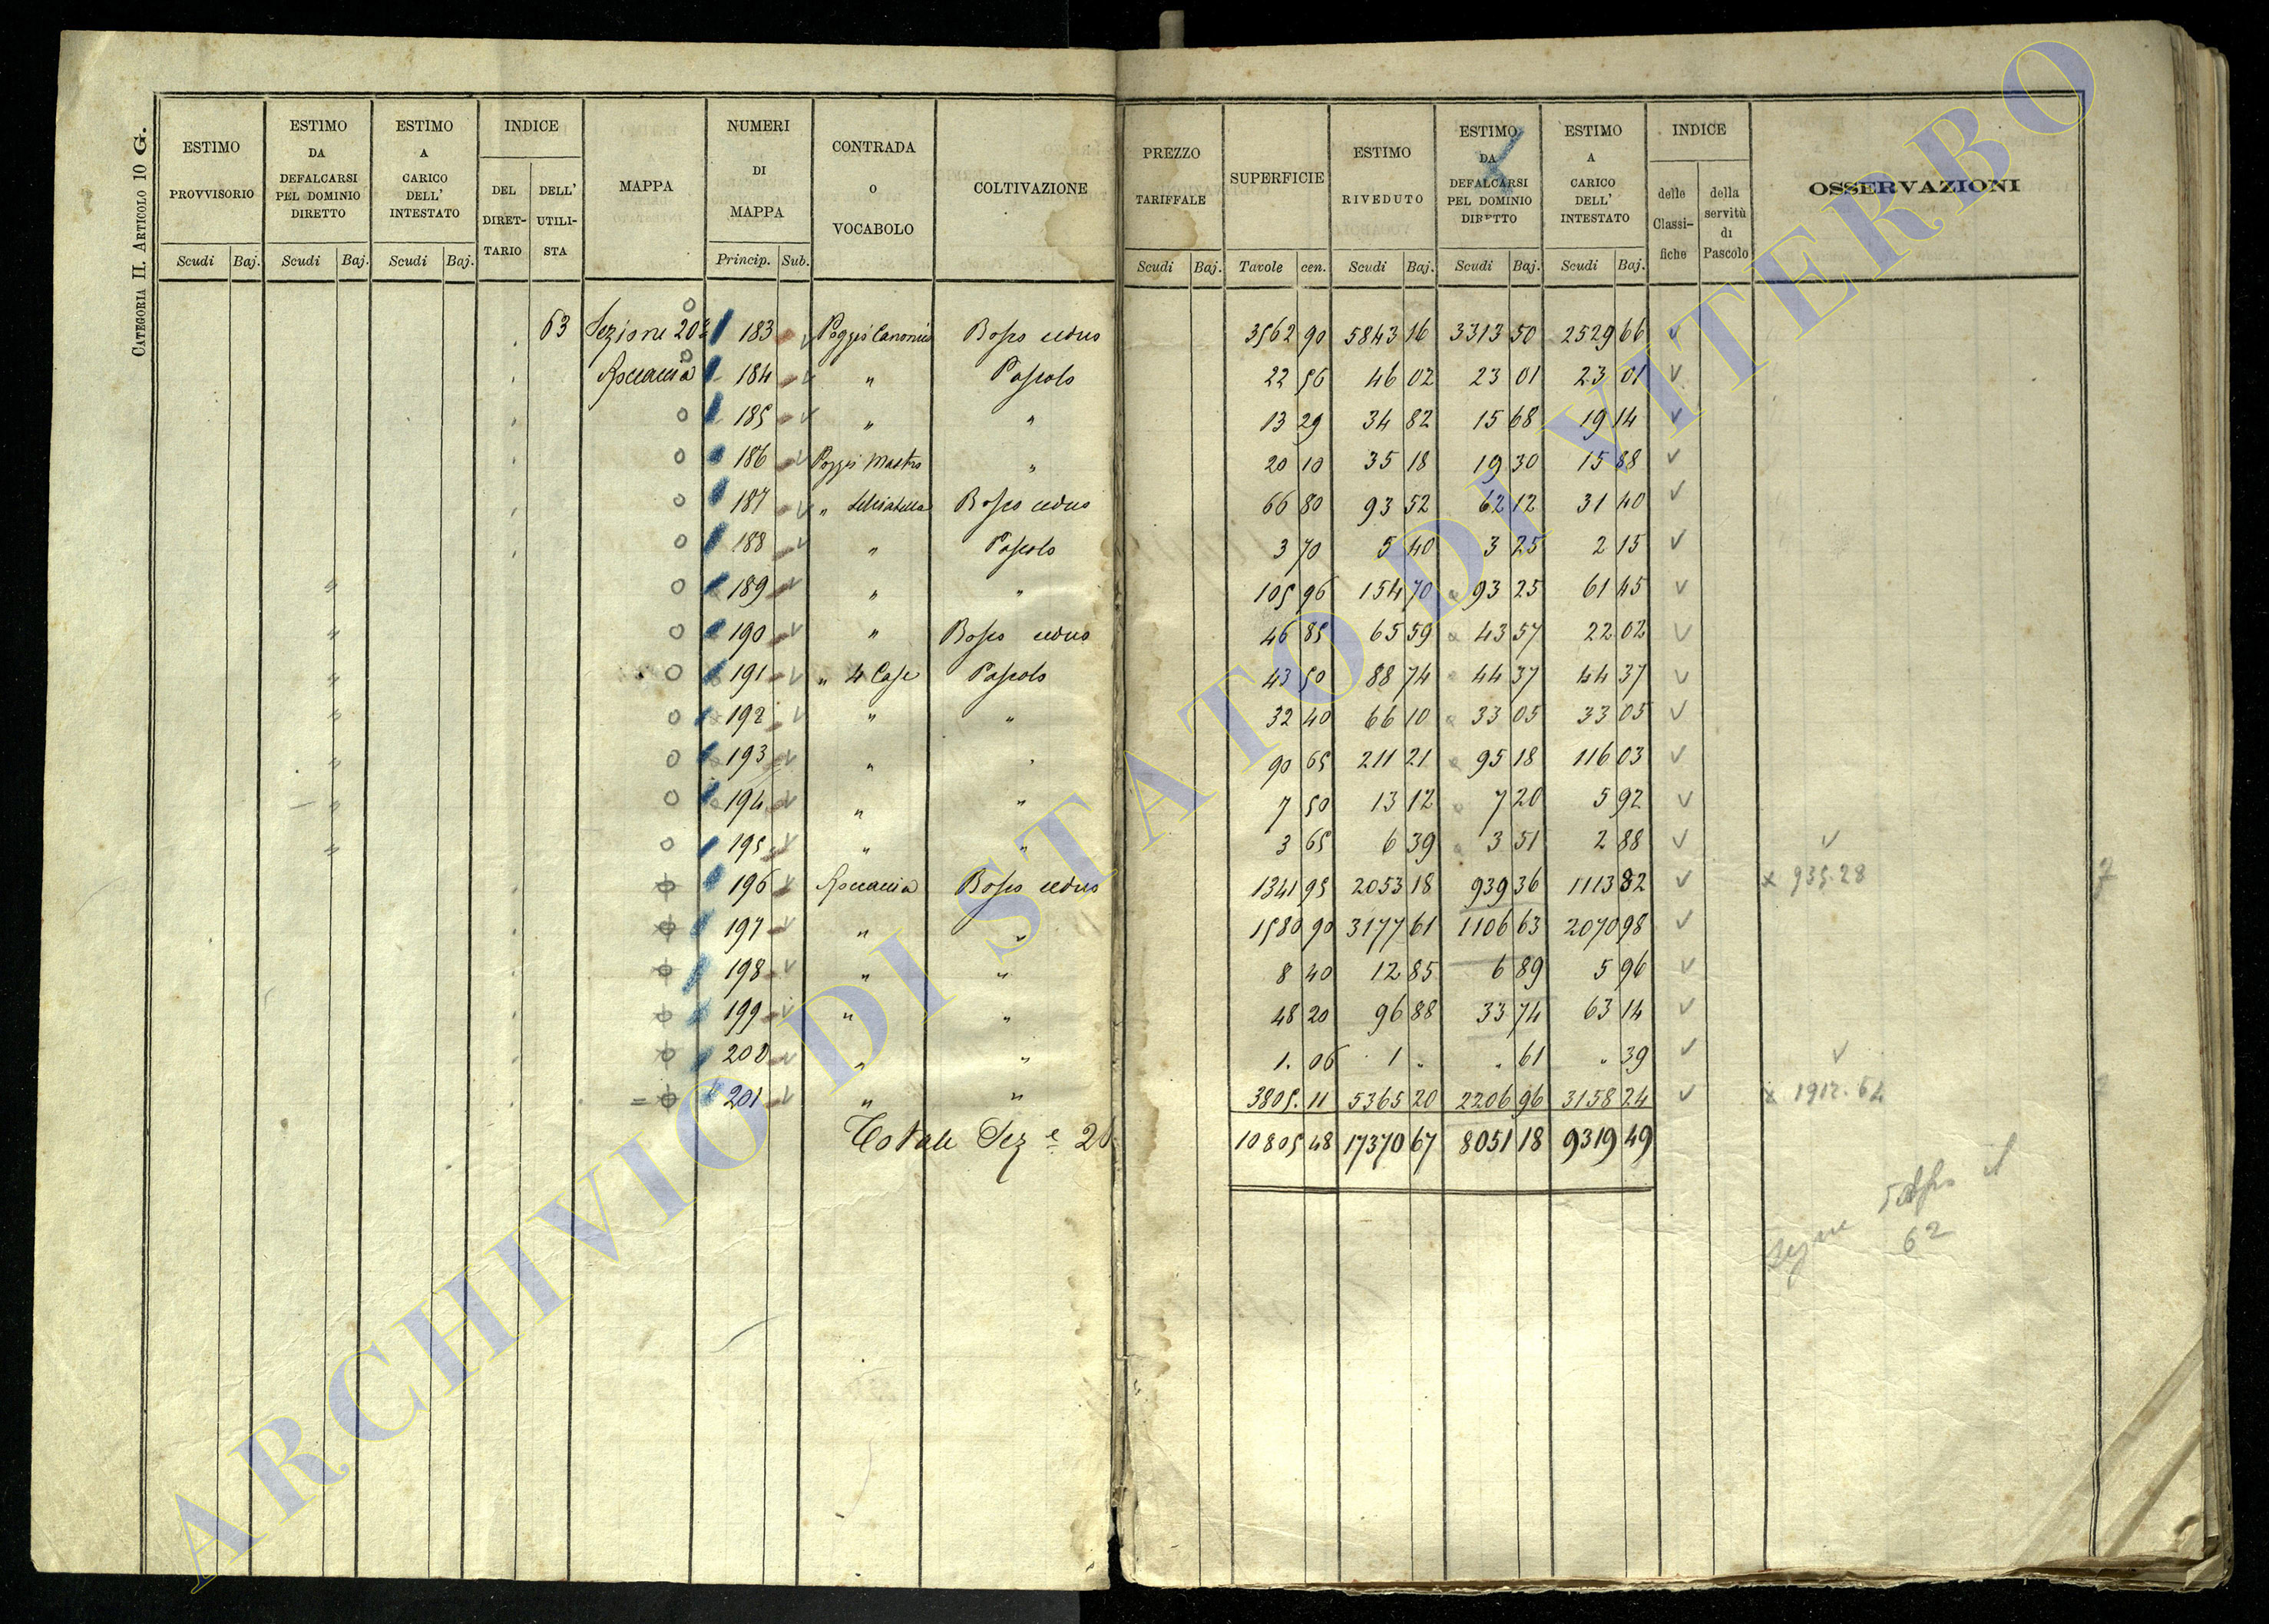 CATEGORIA II. ARTICOLO 10 G.
ESTIMO PROVVISORIO
ESTIMO DA DEFALCARSI PEL DOMINIO DIRETTO
ESTIMO A CARICO DELL' INTESTATO
INDICE
DEL DIRET-TARIO
DELL' UTILI-STA
MAPPA
NUMERI DI MAPPA
CONTRADA O VOCABOLO
COLTIVAZIONE
PREZZO TARIFFALE
SUPERFICIE
ESTIMO RIVEDUTO
ESTIMO DA DEFALCARSI PEL DOMINIO DIRETTO
ESTIMO A CARICO DELL' INTESTATO
INDICE
delle Classi-fiche
della servitù di Pascolo
OSSERVAZIONI
Scudi Baj. Scudi Baj. Scudi Baj. Princip. Sub. Scudi Baj. Tavole cen. Scudi Baj. Scudi Baj. Scudi Baj.
63 Sezione 20a 183 Poggio Canonico Bosco ceduo 3562 90 5843 16 3313 50 2529 66
184 " Pascolo 22 56 46 02 23 01 23 01
185 " " 13 29 34 82 15 68 19 14
186 Poggio Mastro " 20 10 35 18 19 30 15 88
187 " Bosco ceduo 66 80 93 52 62 12 31 40
188 " Pascolo 3 70 5 40 3 25 2 15
" 189 " " 105 96 154 70 93 25 61 45
" 190 " Bosco ceduo 46 85 65 59 43 57 22 02
" 191 " 4 Case Pascolo 43 50 88 74 44 37 44 37
" 192 " " 32 40 66 10 33 05 33 05
" 193 " " 90 65 211 21 95 18 116 03
" 194 " " 7 50 13 12 7 20 5 92
" 195 " " 3 65 6 39 3 51 2 88
196 Bosco ceduo 1341 95 2053 18 939 36 1113 82 x 935.28
197 " " 1580 90 3177 61 1106 63 2070 98
198 " " 8 40 12 85 6 89 5 96
199 " " 48 20 96 88 33 74 63 14
200 " " 1. 06 1 " " 61 " 39
201 " " 3805. 11 5365 20 2206 96 3158 24 x 1912.64
Totale Sez e 20 10805 48 17370 67 8051 18 9319 49
segue
62
ARCHIVIO DI STATO DI VITERBO